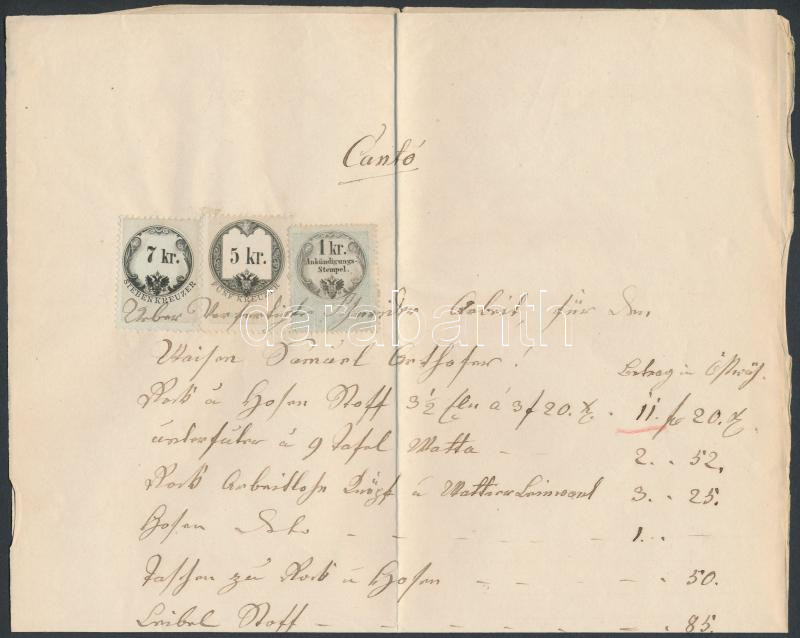 Cantó
7 kr.
SIEBENKREUZER
5 kr.
FÜNF KREUZER
1 kr.
Ankündigungs-
Stempel.
Ueber Verfertigte Schneider Arbeit, für den
Waisen Samuel Orthofer!
Betrag in Östwäh.
Rock u Hosen Stoff 3 ½ Elen á 3 f 20. x. . 11. f 20. x.
unterfuter u 9 Tafel Watta - - 2. . 52.
Rock Arbeitlohn Knöpf u Leinwant 3. . 25.
Hosen dto - - - - - - 1. . . -
Taschen zu Rock u Hosen - - - - . 50.
Leibel Stoff - - - - - - . 85.
darabanth